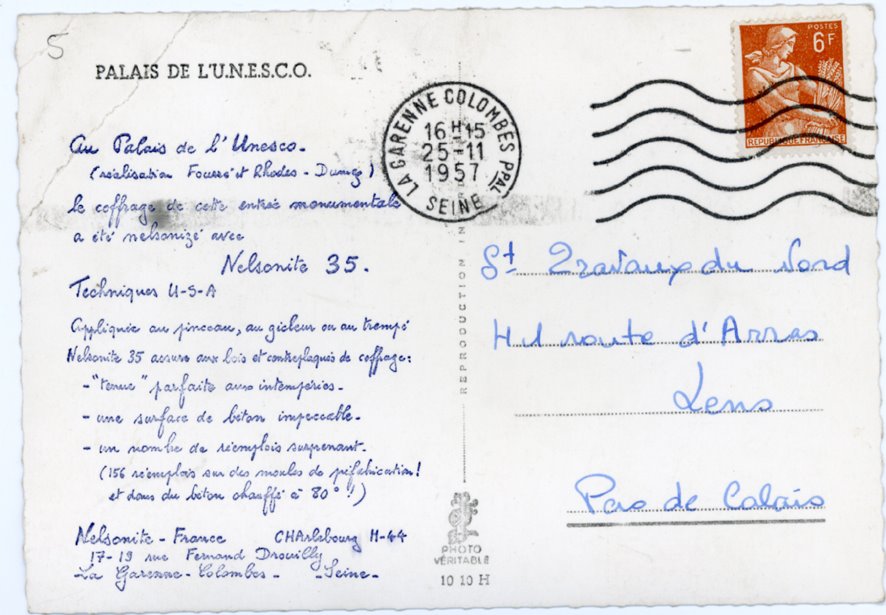 5
PALAIS DE L'U.N.E.S.C.O.
Au Palais de l'Unesco-
(réalisation Fourré et Rhodes - Dumez)
le coffrage de cette entrée monumentale
a été nelsonizé avec
Nelsonite 35.
Techniques U-S-A
Appliquée au pinceau, au gicleur ou au trempé
Nelsonite 35 assure aux bois et contreplaqués de coffrage:
-"tenue" parfaite aux intempéries-
- une surface de béton impeccable-
- un nombre de réemplois surprenant-
(156 réemplois sur des moules de préfabrication!
et dans du béton chauffé à 80° !!)
Nelsonite - France CHArlebourg H-44
17-19 rue Fernand Drouilly
La Garenne-Colombes- -Seine-
REPRODUCTION IN
PHOTO
VÉRITABLE
10 10 H
LA GARENNE COLOMBES PPAL
16H15
25-11
1957
SEINE
POSTES
6F
REPUBLIQUE FRANÇAISE
St Travaux du Nord
route d'Arras
Lens
Pas de Calais